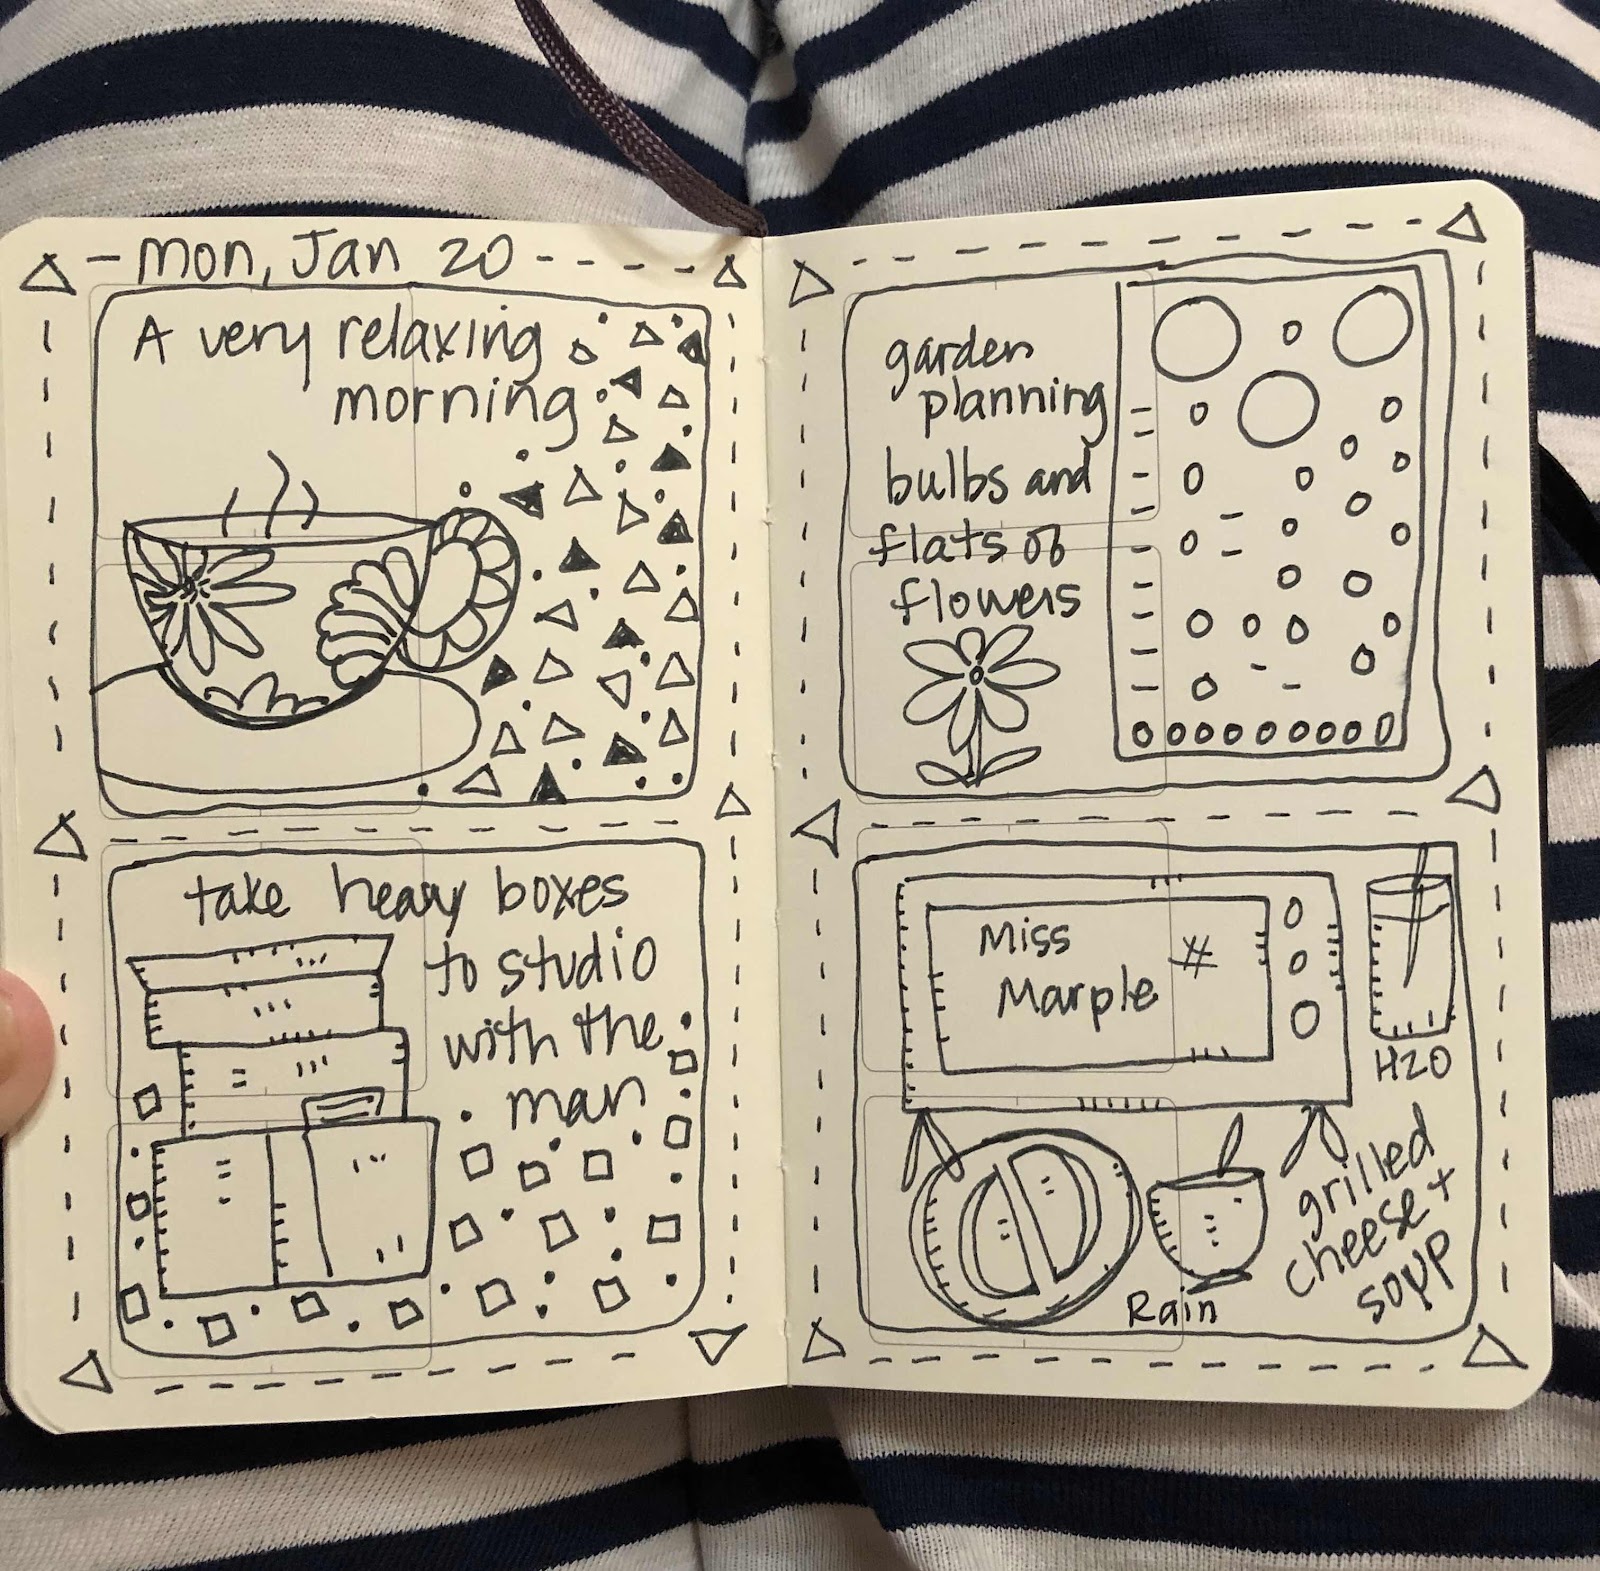 Mon, Jan 20
A very relaxing
morning
take heavy boxes
to studio
with the
man
garden
planning
bulbs and
flats of
flowers
Miss
Marple
#
H2O
grilled
cheese +
soup
Rain